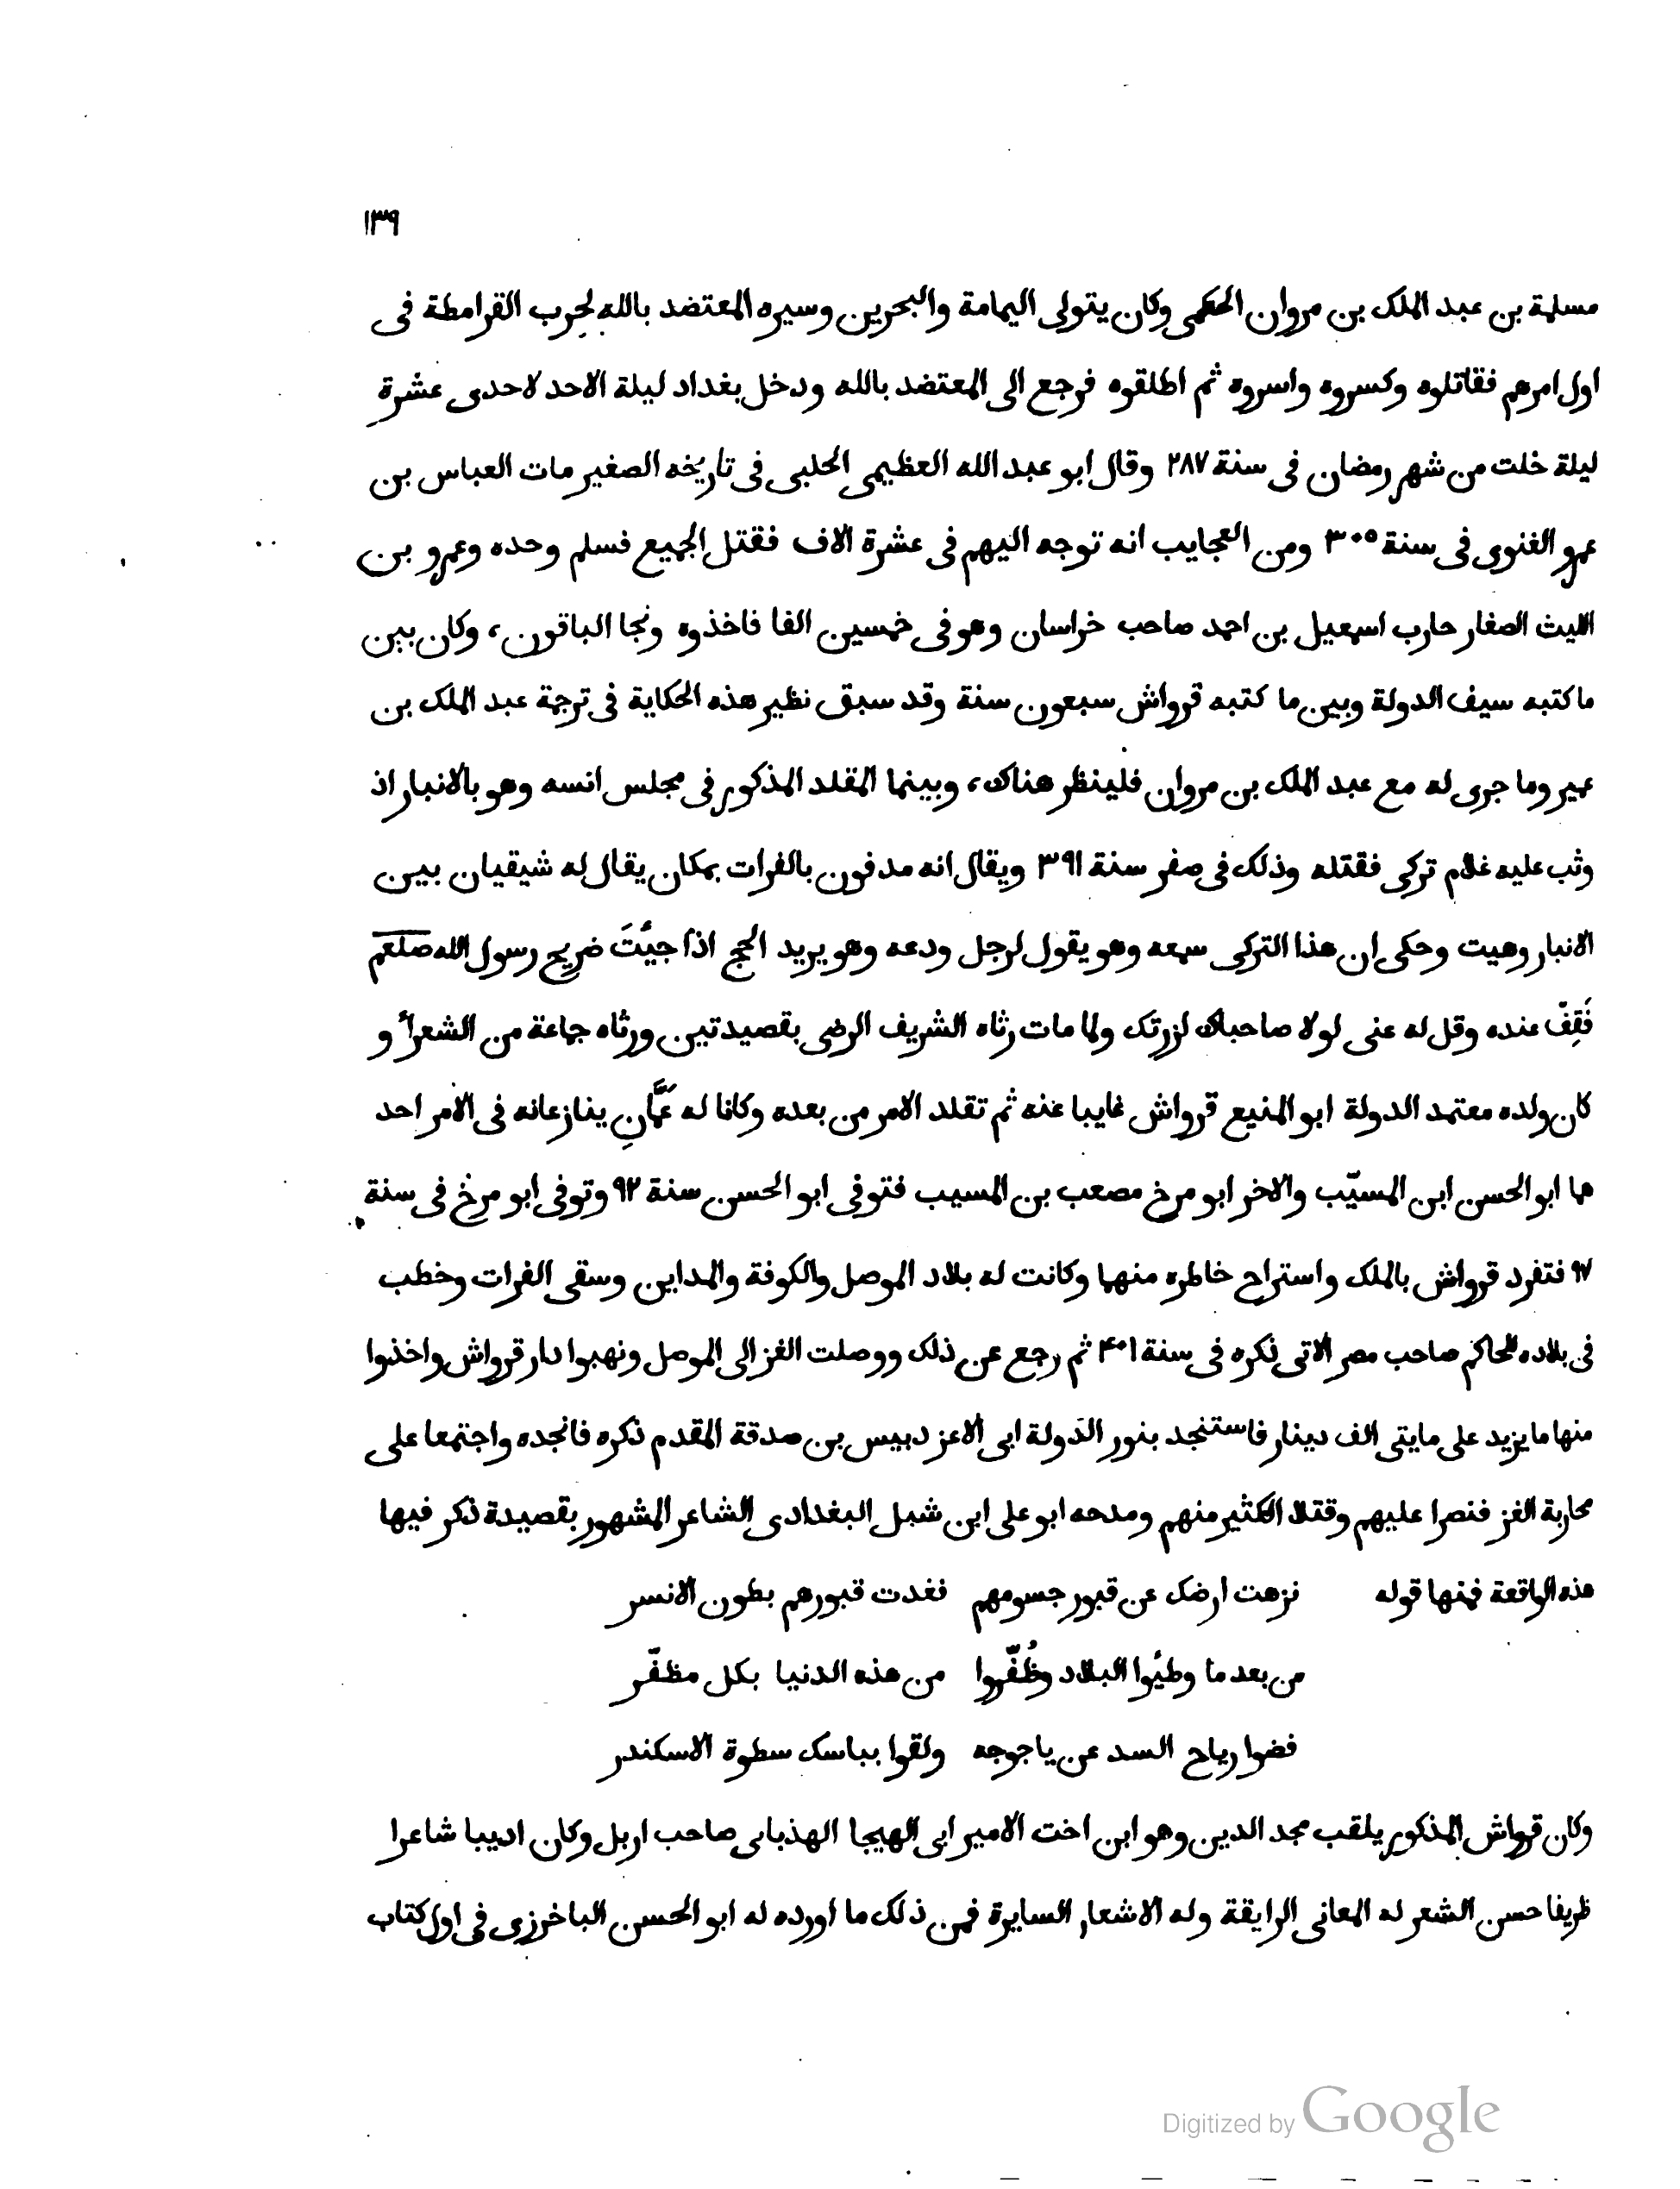 ١٣٩
مسلمة بن عبد الملك بن مروان الحكمى وكان يتولى اليمامة والبحرين وسيره المعتضد بالله لحرب القرامطة فى
اول امرهم فقاتلوه وكسروه واسروه ثم اطلقوه فرجع الى المعتضد بالله ودخل بغداد ليلة الاحد لاحدى عشرة
ليلة خلت من شهر رمضان فى سنة ٢٨٧ وقال ابو عبد الله العظيمى الحلبى فى تاريخه الصغير مات العباس بن
عمرو الغنوى فى سنة ٣٠٥ ومن العجايب انه توجه اليهم فى عشرة الاف فقتل الجميع فسلم وحده وعمرو بن
الليث الصفار حارب اسمعيل بن احمد صاحب خراسان وهو فى خمسين الفا فاخذوه ونجا الباقون، وكان بين
ما كتبه سيف الدولة وبين ما كتبه قرواش سبعون سنة وقد سبق نظير هذه الحكاية فى ترجمة عبد الملك بن
عمير وما جرى له مع عبد الملك بن مروان فلينظر هناك، وبينما المقلد المذكور فى مجلس انسه وهو بالانبار اذ
وثب عليه غلام تركى فقتله وذلك فى صفر سنة ٣٩١ ويقال انه مدفون بالفرات بمكان يقال له شيقيان بين
الانبار وهيت وحكى ان هذا التركى سمعه وهو يقول لرجل ودعه وهو يريد الحج اذا جيّتَ ضريح رسول الله صلعم
فَقِفْ عنده وقل له عنى لولا صاحباك لزرتك ولما مات رثاه الشريف الرضى بقصيدتين ورثاه جماعة من الشعرأ و
كان ولده معتمد الدولة ابو المنيع قرواش غايبا عنه ثم تقلد الامر من بعده وكانا له عَمَّانِ ينازعانه فى الامر احد
هما ابو الحسن ابن المسيّب والاخر ابو مرخ مصعب بن المسيب فتوفى ابو الحسن سنة ٩٢ وتوفى ابو مرخ فى سنة
٩٧ فتفرد قرواش بالملك واستراح خاطره منهما وكانت له بلاد الموصل والكوفة والمداين وسقى الفرات وخطب
فى بلاده للحاكم صاحب مصر الاتى ذكره فى سنة ٤٠١ ثم رجع عن ذلك ووصلت الغز الى الموصل ونهبوا دار قرواش واخذوا
منها ما يزيد على مايتى الف دينار فاستنجد بنور الدولة ابى الاعز دبيس بن صدقة المقدم ذكره فانجده واجتمعا على
محاربة الغز فنصرا عليهم وقتلا الكثير منهم ومدحه ابو على ابن شبل البغدادى الشاعر المشهور بقصيدة ذكر فيها
هذه الواقعة فمنها قوله نزهت ارضك عن قبور جسومهم فغدت قبورهم بطون الانسر
من بعد ما وطيُوا البلاد وظُفّروا من هذه الدنيا بكل مظفّر
فضوا رياح السد عن ياجوجه ولقوا بباسك سطوة الاسكندر
وكان قرواش المذكور يلقب مجد الدين وهو ابن اخت الامير ابى الهيجا الهذبانى صاحب اربل وكان اديبا شاعرا
ظريفا حسن الشعر له المعانى الرايقة وله الاشعار السايرة فمن ذلك ما اورده له ابو الحسن الباخرزى فى اول كتاب
Digitized by Google